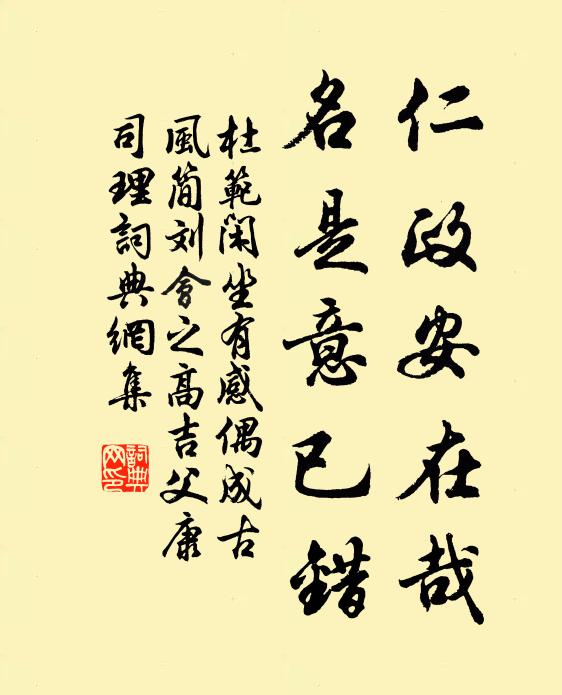 仁政安在哉
名是意已錯
杜範閑坐有感偶成古
風簡刘會之高吉父康
司理詞典網集
詞典網印